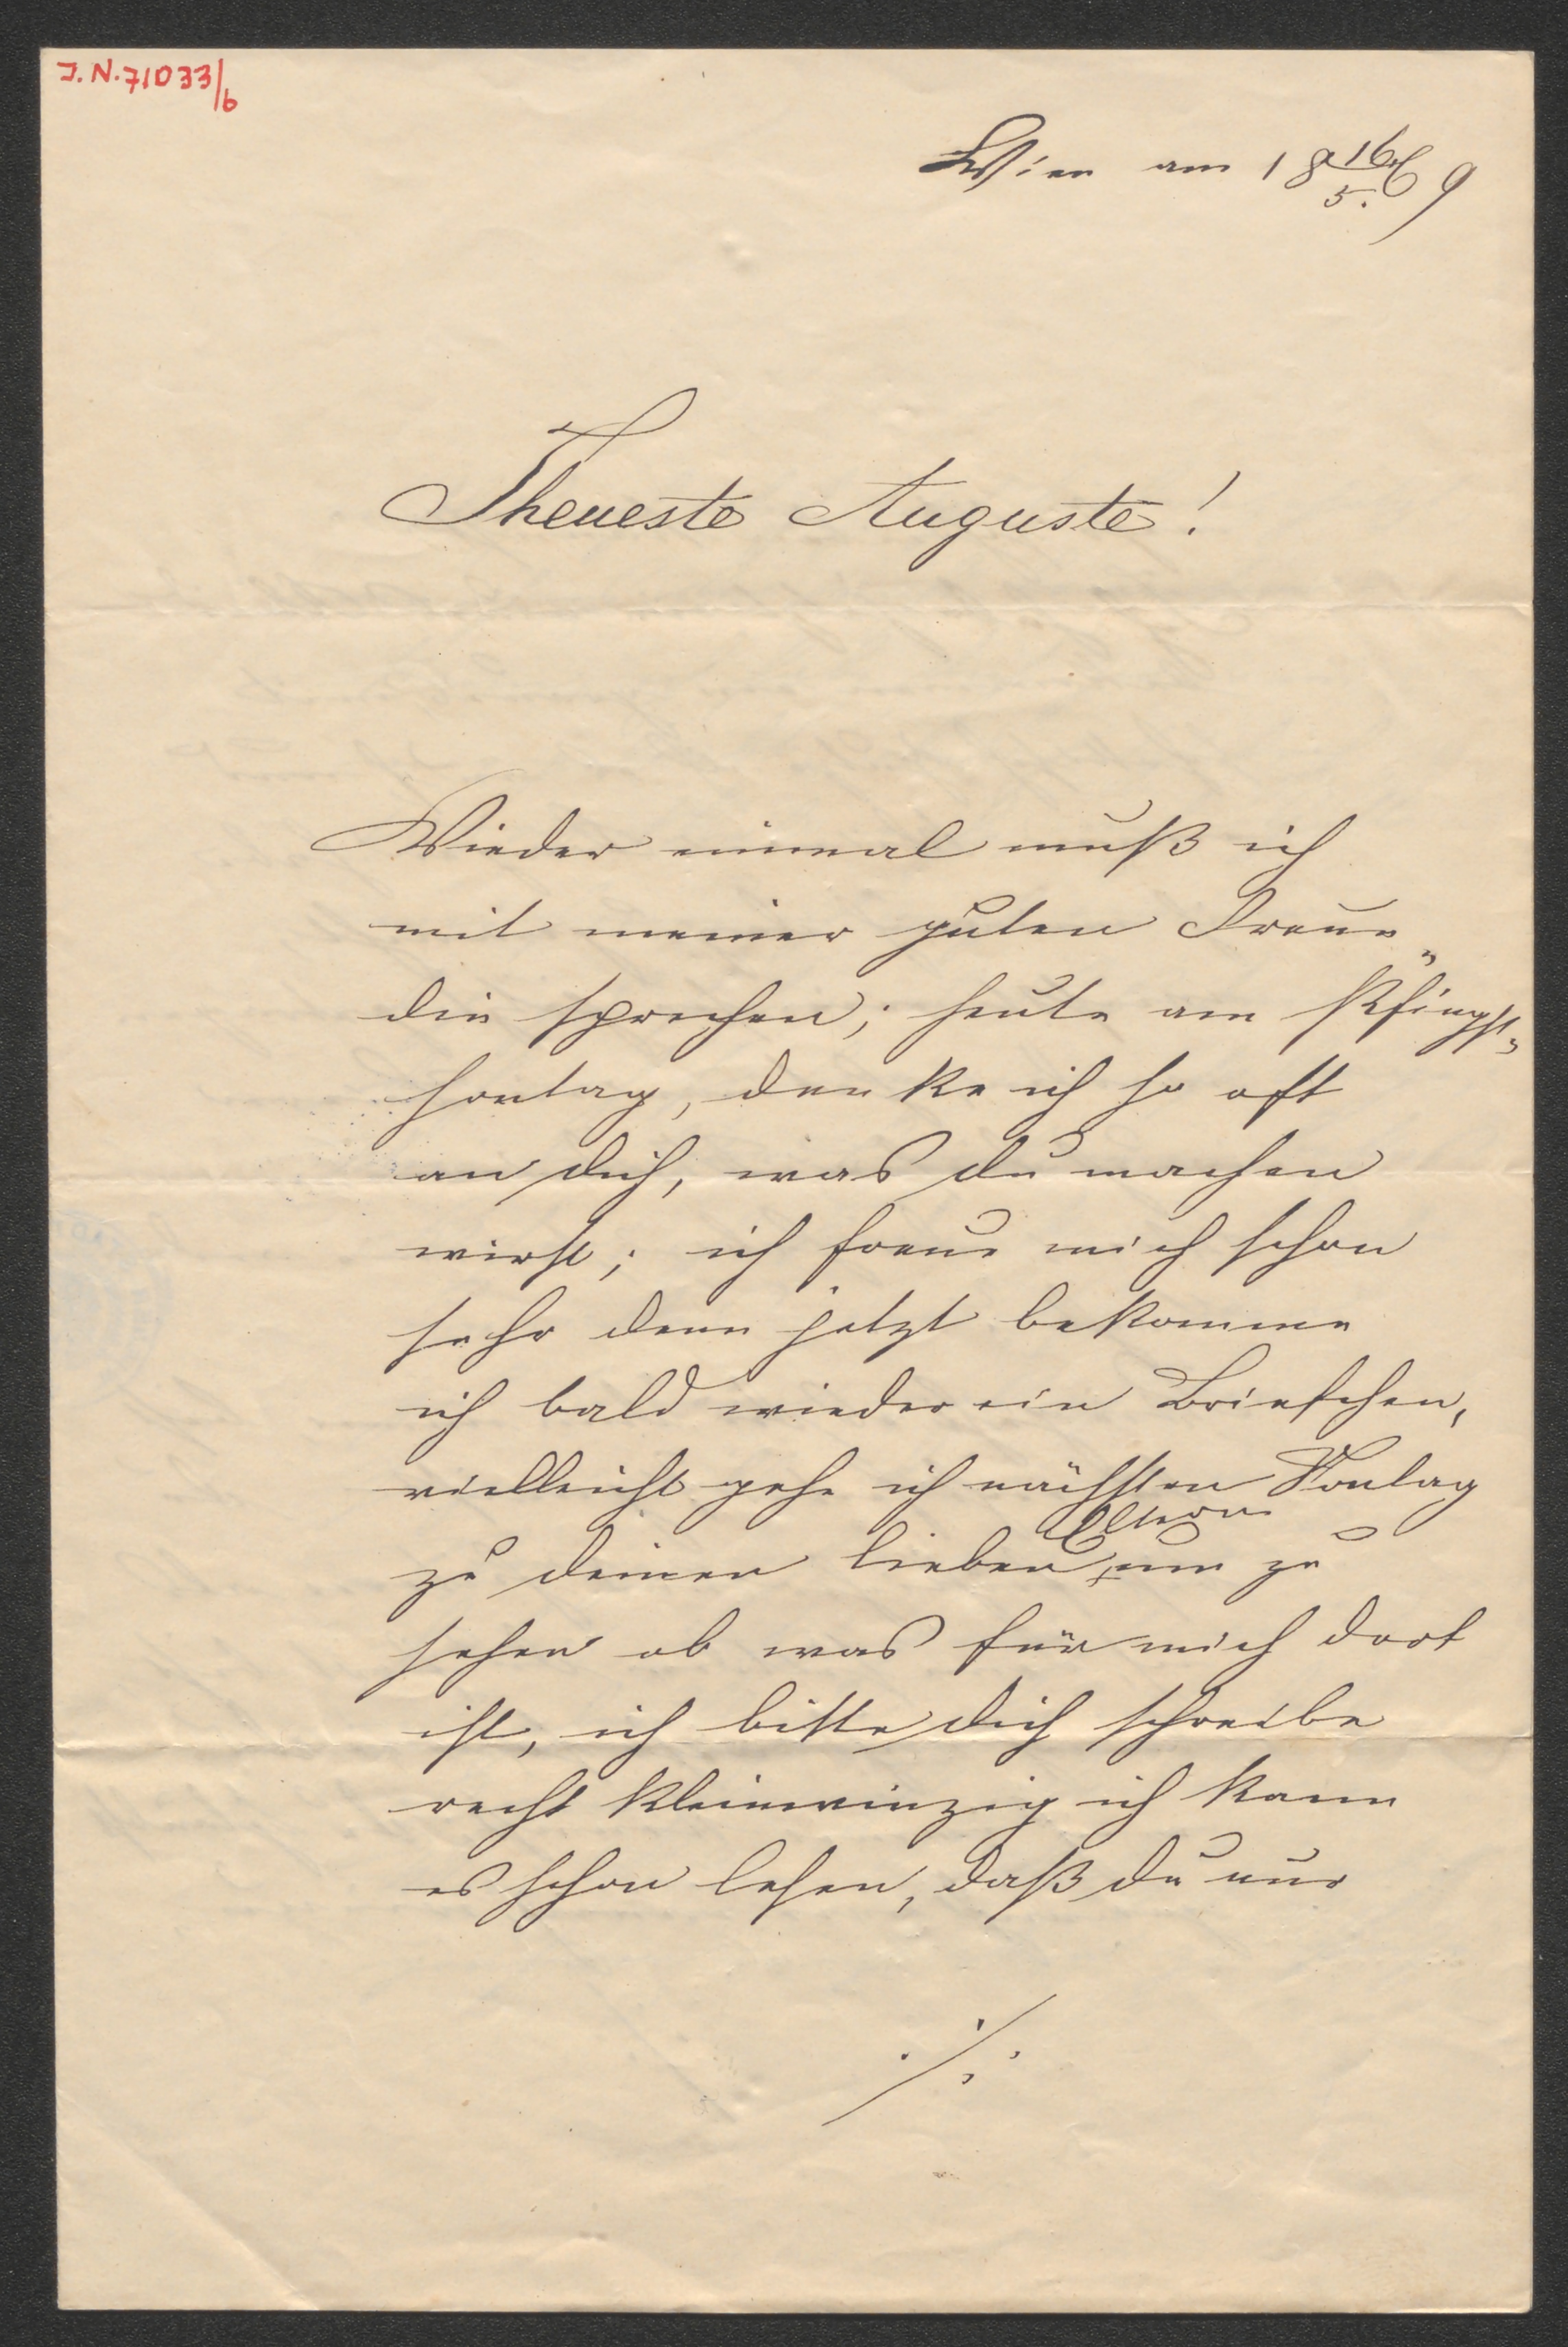 J.N. 71033/6
Wien am 18 16/5. 69
Theueste Auguste!
Wieder einmal muß ich
mit meiner guten Freun„
din sprechen; heute am Pfingst„
sontag, denke ich so oft
an dich, was du machen
wirst; ich freue mich schon
sehr denn jetzt bekomme
ich bald wieder ein Briefchen,
vielleicht gehe ich nächsten Sontag
Eltern
zu deinen lieben, um zu
sehen ob was für mich dort
ist, ich bitte dich schreibe
recht kleinwinzig ich kann
es schon lesen, daß du nur
./.